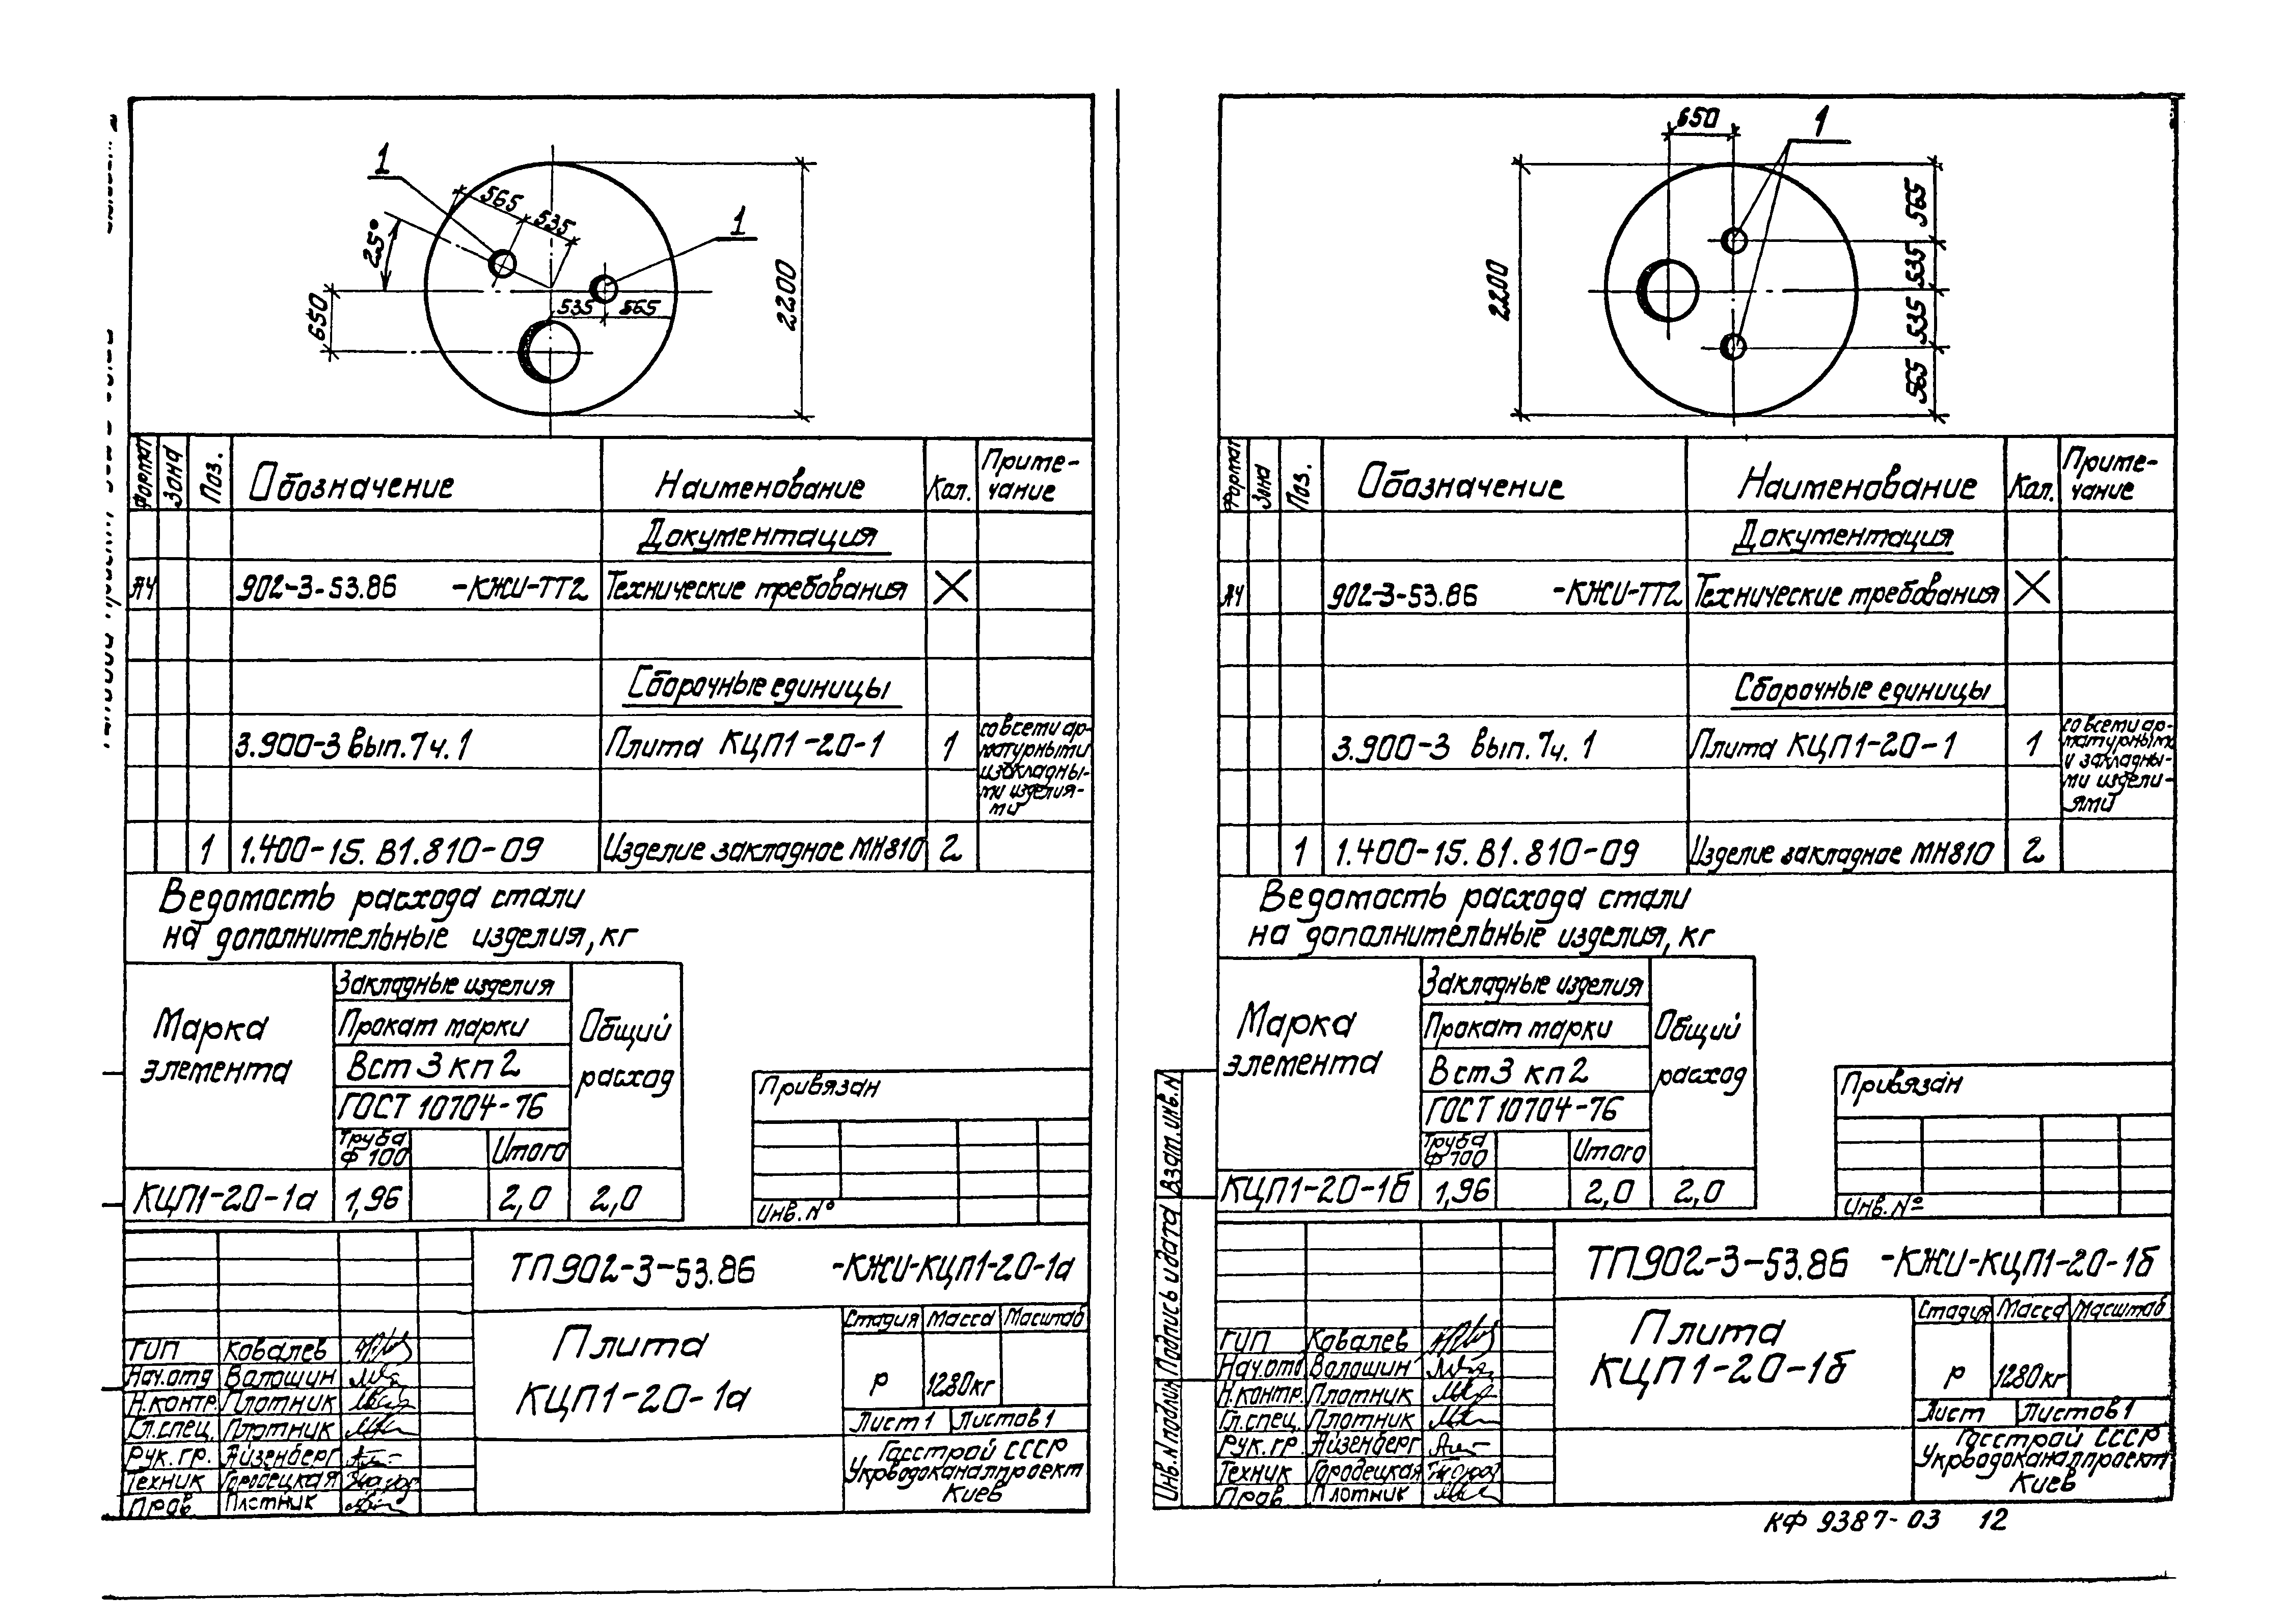 1
565
535
1
25°
650
535
565
2200
Формат
Зона
Поз.
Обозначение
Наименование
Кол.
Приме-
чание
Документация
А4
902-3-53.86 -КЖИ-ТТ2
Технические требования
Сборочные единицы
3.900-3 вып.7ч.1
Плита КЦП1-20-1
1
со всеми ар-
матурными
и закладны-
ми изделия-
ми
1
1.400-15.В1.810-09
Изделие закладное МН810
2
Ведомость расхода стали
на дополнительные изделия, кг
Марка
элемента
Закладные изделия
Прокат марки
Вст 3 кп 2
ГОСТ 10704-76
Труба
Ф 100
Итого
Общий
расход
КЦП1-20-1а
1,96
2,0
2,0
Привязан
Инв. №
ТП 902-3-53.86 -КЖИ-КЦП1-20-1а
Плита
КЦП1-20-1а
Стадия
Масса
Масштаб
Р
1280кг
Лист 1
Листов 1
Госстрой СССР
Укрводоканалпроект
Киев
ГИП Ковалев
Нач.отд Волошин
Н.контр. Плотник
Гл.спец. Плотник
Рук.гр. Айзенберг
Техник Городецкая
Пров. Плотник
650
1
2200
565
535
535
565
Формат
Зона
Поз.
Обозначение
Наименование
Кол.
Приме-
чание
Документация
А4
902-3-53.86 -КЖИ-ТТ2
Технические требования
Сборочные единицы
3.900-3 вып.7ч.1
Плита КЦП1-20-1
1
со всеми ар-
матурными
и закладны-
ми издели-
ями
1
1.400-15.В1.810-09
Изделие закладное МН810
2
Ведомость расхода стали
на дополнительные изделия, кг
Марка
элемента
Закладные изделия
Прокат марки
Вст3 кп2
ГОСТ 10704-76
Труба
Ф 100
Итого
Общий
расход
КЦП1-20-1б
1,96
2,0
2,0
Привязан
Инв. №
Взам.инв.N
Подпись и дата
Инв.N подлин
ТП 902-3-53.86 -КЖИ-КЦП1-20-1б
Плита
КЦП1-20-1б
Стадия
Масса
Масштаб
Р
1280кг
Лист
Листов 1
Госстрой СССР
Укрводоканалпроект
Киев
ГИП Ковалев
Нач.отд Волошин
Н.контр. Плотник
Гл.спец. Плотник
Рук.гр. Айзенберг
Техник Городецкая
Пров. Плотник
КФ 9387-03 12